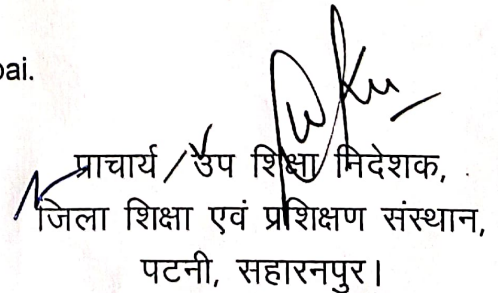 bai.
प्राचार्य / उप शिक्षा निदेशक,
जिला शिक्षा एवं प्रशिक्षण संस्थान,
पटनी, सहारनपुर।